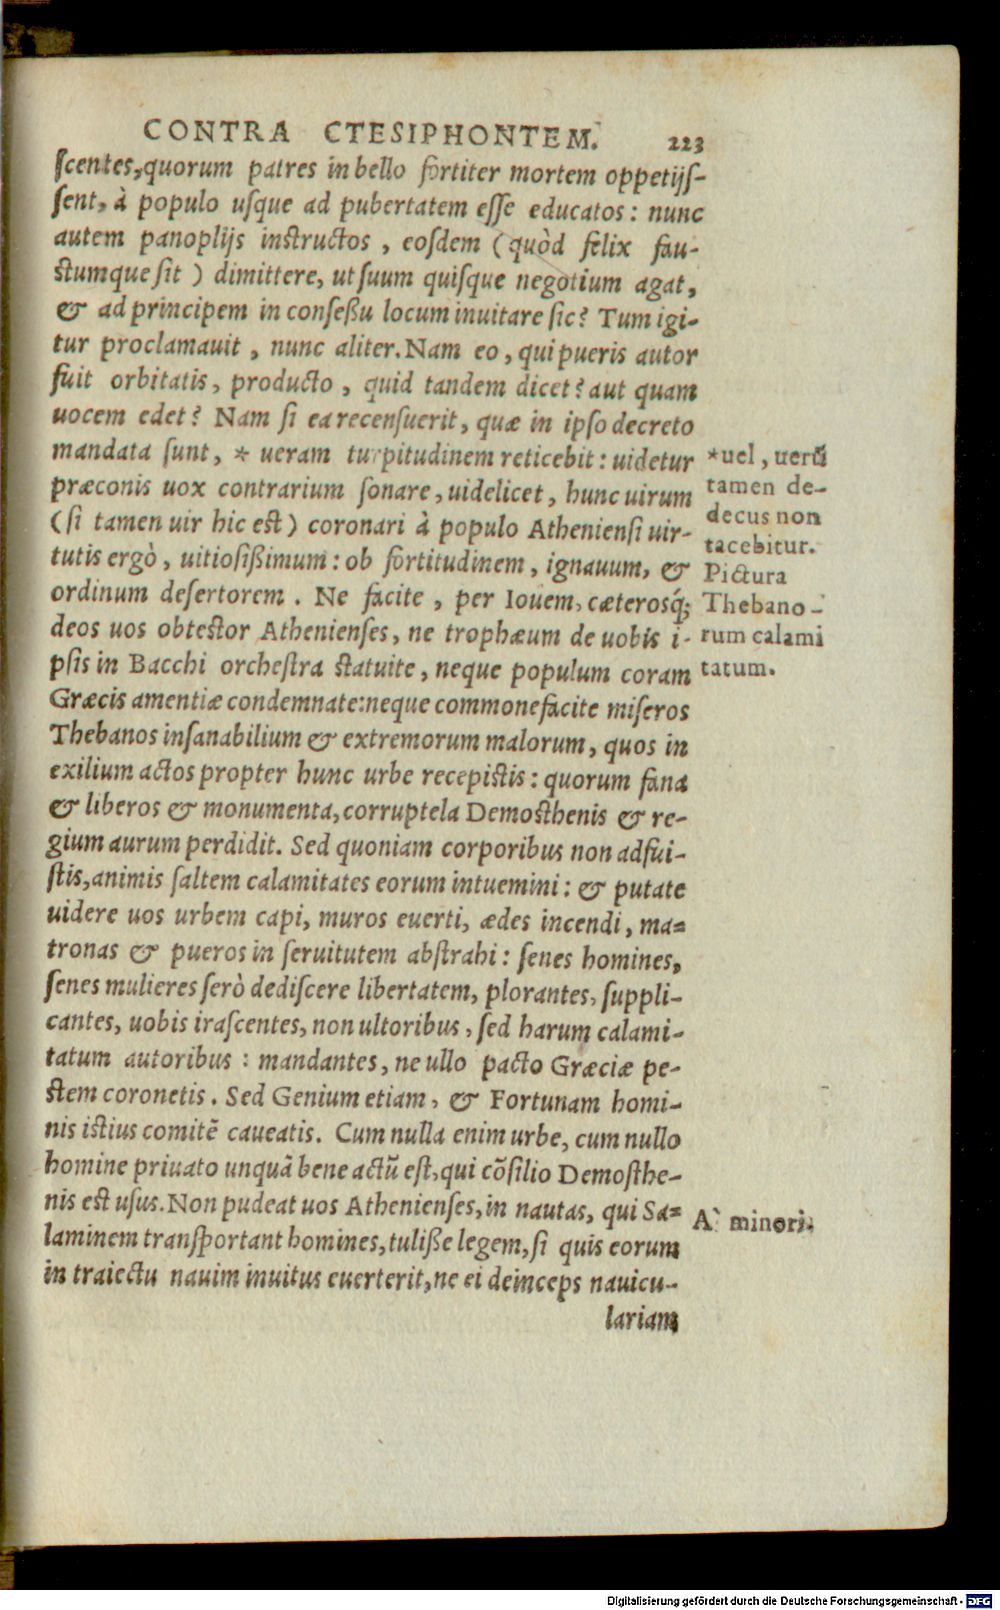 CONTRA CTESIPHONTEM. 223
ſcentes, quorum patres in bello fortiter mortem oppetijſ-
ſent, à populo uſque ad pubertatem eſſe educatos: nunc
autem panoplijs inſtructos, eoſdem (quòd felix fau-
ſtumque ſit) dimittere, ut ſuum quiſque negotium agat,
& ad principem in conſeßu locum inuitare ſic? Tum igi-
tur proclamauit, nunc aliter. Nam eo, qui pueris autor
fuit orbitatis, producto, quid tandem dicet? aut quam
uocem edet? Nam ſi ea recenſuerit, quæ in ipſo decreto
mandata ſunt, * ueram turpitudinem reticebit: uidetur
præconis uox contrarium ſonare, uidelicet, hunc uirum
(ſi tamen uir hic eſt) coronari à populo Athenienſi uir-
tutis ergò, uitioſißimum: ob fortitudinem, ignauum, &
ordinum deſertorem. Ne facite, per Iouem, cæterosq́;
deos uos obteſtor Athenienſes, ne trophæum de uobis i-
pſis in Bacchi orcheſtra ſtatuite, neque populum coram
Græcis amentiæ condemnate: neque commonefacite miſeros
Thebanos inſanabilium & extremorum malorum, quos in
exilium actos propter hunc urbe recepiſtis: quorum fana
& liberos & monumenta, corruptela Demoſthenis & re-
gium aurum perdidit. Sed quoniam corporibus non adfui-
ſtis, animis ſaltem calamitates eorum intuemini: & putate
uidere uos urbem capi, muros euerti, ædes incendi, ma-
tronas & pueros in ſeruitutem abſtrahi: ſenes homines,
ſenes mulieres ſerò dediſcere libertatem, plorantes, ſuppli-
cantes, uobis iraſcentes, non ultoribus, ſed harum calami-
tatum autoribus: mandantes, ne ullo pacto Græciæ pe-
ſtem coronetis. Sed Genium etiam, & Fortunam homi-
nis iſtius comitẽ caueatis. Cum nulla enim urbe, cum nullo
homine priuato unquã bene actũ eſt, qui cõſilio Demoſthe-
nis eſt uſus. Non pudeat uos Athenienſes, in nautas, qui Sa-
laminem tranſportant homines, tuliße legem, ſi quis eorum
in traiectu nauim inuitus euerterit, ne ei deinceps nauicu-
lariam
*uel, uerũ
tamen de-
decus non
tacebitur.
Pictura
Thebano-
rum calami
tatum.
A` minori.
Digitalisierung gefördert durch die Deutsche Forschungsgemeinschaft - DFG